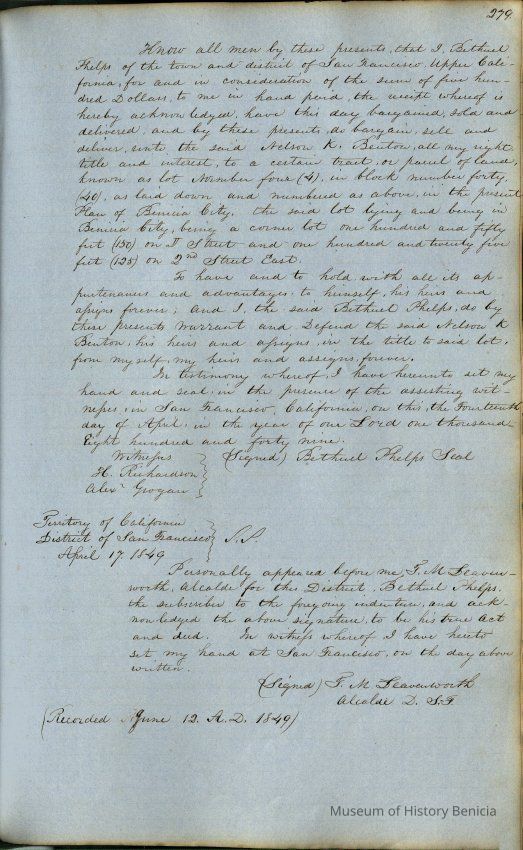 279.
Know all men by these presents, that I, Bethuel
Phelps of the town and district of San Francisco, Upper Cali-
fornia, for and in consideration of the sum of five hun-
dred Dollars, to me in hand paid, the receipt whereof is
hereby acknowledged, have this day, bargained, sold and
delivered, and by these presents, do bargain, sell and
deliver, unto the said Nelson K. Benton, all my right
title and interest, to a certain tract, or parcel of land,
known as lot Number four (4), in block number forty,
(40), as laid down and numbered as above, in the present
Plan of Benicia City. the said lot lying and being in
Benicia City, being a corner lot one hundred and fifty
feet (150) on Street and one hundred and twenty five
feet (125) on 2nd Street East.
To have and to hold with all its ap-
purtenances and advantages to himself, his heirs and
assigns forever; and I, the said Bethuel Phelps, do by
these presents Warrant and Defend the said Nelson K
Benton, his heirs and assigns, in the title to said lot,
from myself, my heirs and assigns, forever.
In testimony whereof, I have hereunto set my
hand and seal, in the presence of the assisting wit-
nesses, in San Francisco, California, on this, the Fourteenth
day of April, in the year of our Lord one thousand
Eight hundred and forty nine.
Witnesses (Signed) Bethuel Phelps Seal
H. Richardson
Alexr Grogan
Territory of California
District of San Francisco S.S.
April 17. 1849
Personally appeared before me, T. M. Leaven-
worth, Alcalde for this District, Bethuel Phelps,
the subscriber to the foregoing indenture, and ack-
nowledged the above signature, to be his true act
and deed. In witness whereof I have hereto
set my hand at San Francisco, on the day above
written.
(Signed) T. M. Leavenworth
Alcalde D. S.F
(Recorded June 12. A.D. 1849)
Museum of History Benicia